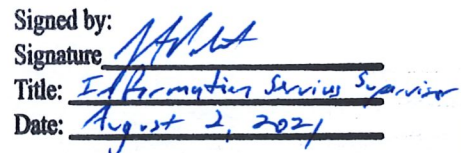 Signed by:
Signature
Title: Information Services Supervisor
Date: August 2, 2021